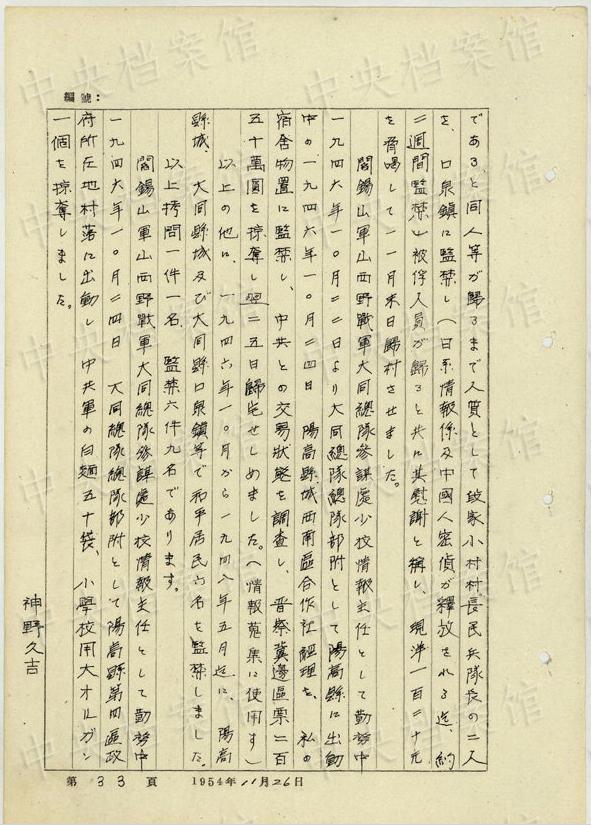 編號：
である）と同人等が歸るまで人質として段家小村村長民兵隊長の二人
を、口泉鎮に監禁し（日系情報係及中國人密偵が釋放される迄、約
二週間監禁）被俘人員が歸ると共に其慰謝と稱し、現洋一百二十元
を脅喝して一一月末日歸村させました。
閻錫山軍山西野戰軍大同總隊參謀處少校情報主任として勤務中
一九四六年一〇月二二日より大同總隊總隊部附として陽高縣に出動
中の一九四六年一〇月二四日　陽高縣城西南區合作社經理を、私の
宿舍物置に監禁し、中共との交易狀態を調査し、晋察冀邊區票二百
五十萬圓を掠奪し翌二五日歸宅せしめました。（情報蒐集に使用す）
以上の他に、一九四六年一〇月から一九四八年五月迄に、陽高
縣城、大同縣城及び大同縣口泉鎮等で和平居民六名を監禁しました。
以上拷問一件一名、監禁六件九名であります。
閻錫山軍山西野戰軍大同總隊參謀處少校情報主任として勤務中
一九四六年一〇月二四日　大同總隊總隊部附として陽高縣第四區政
府所在地村落に出動し　中共軍の白麺五十袋、小學校用大オルガン
一個を掠奪しました。
神野久吉
第 33 頁　1954年11月26日
中央档案馆